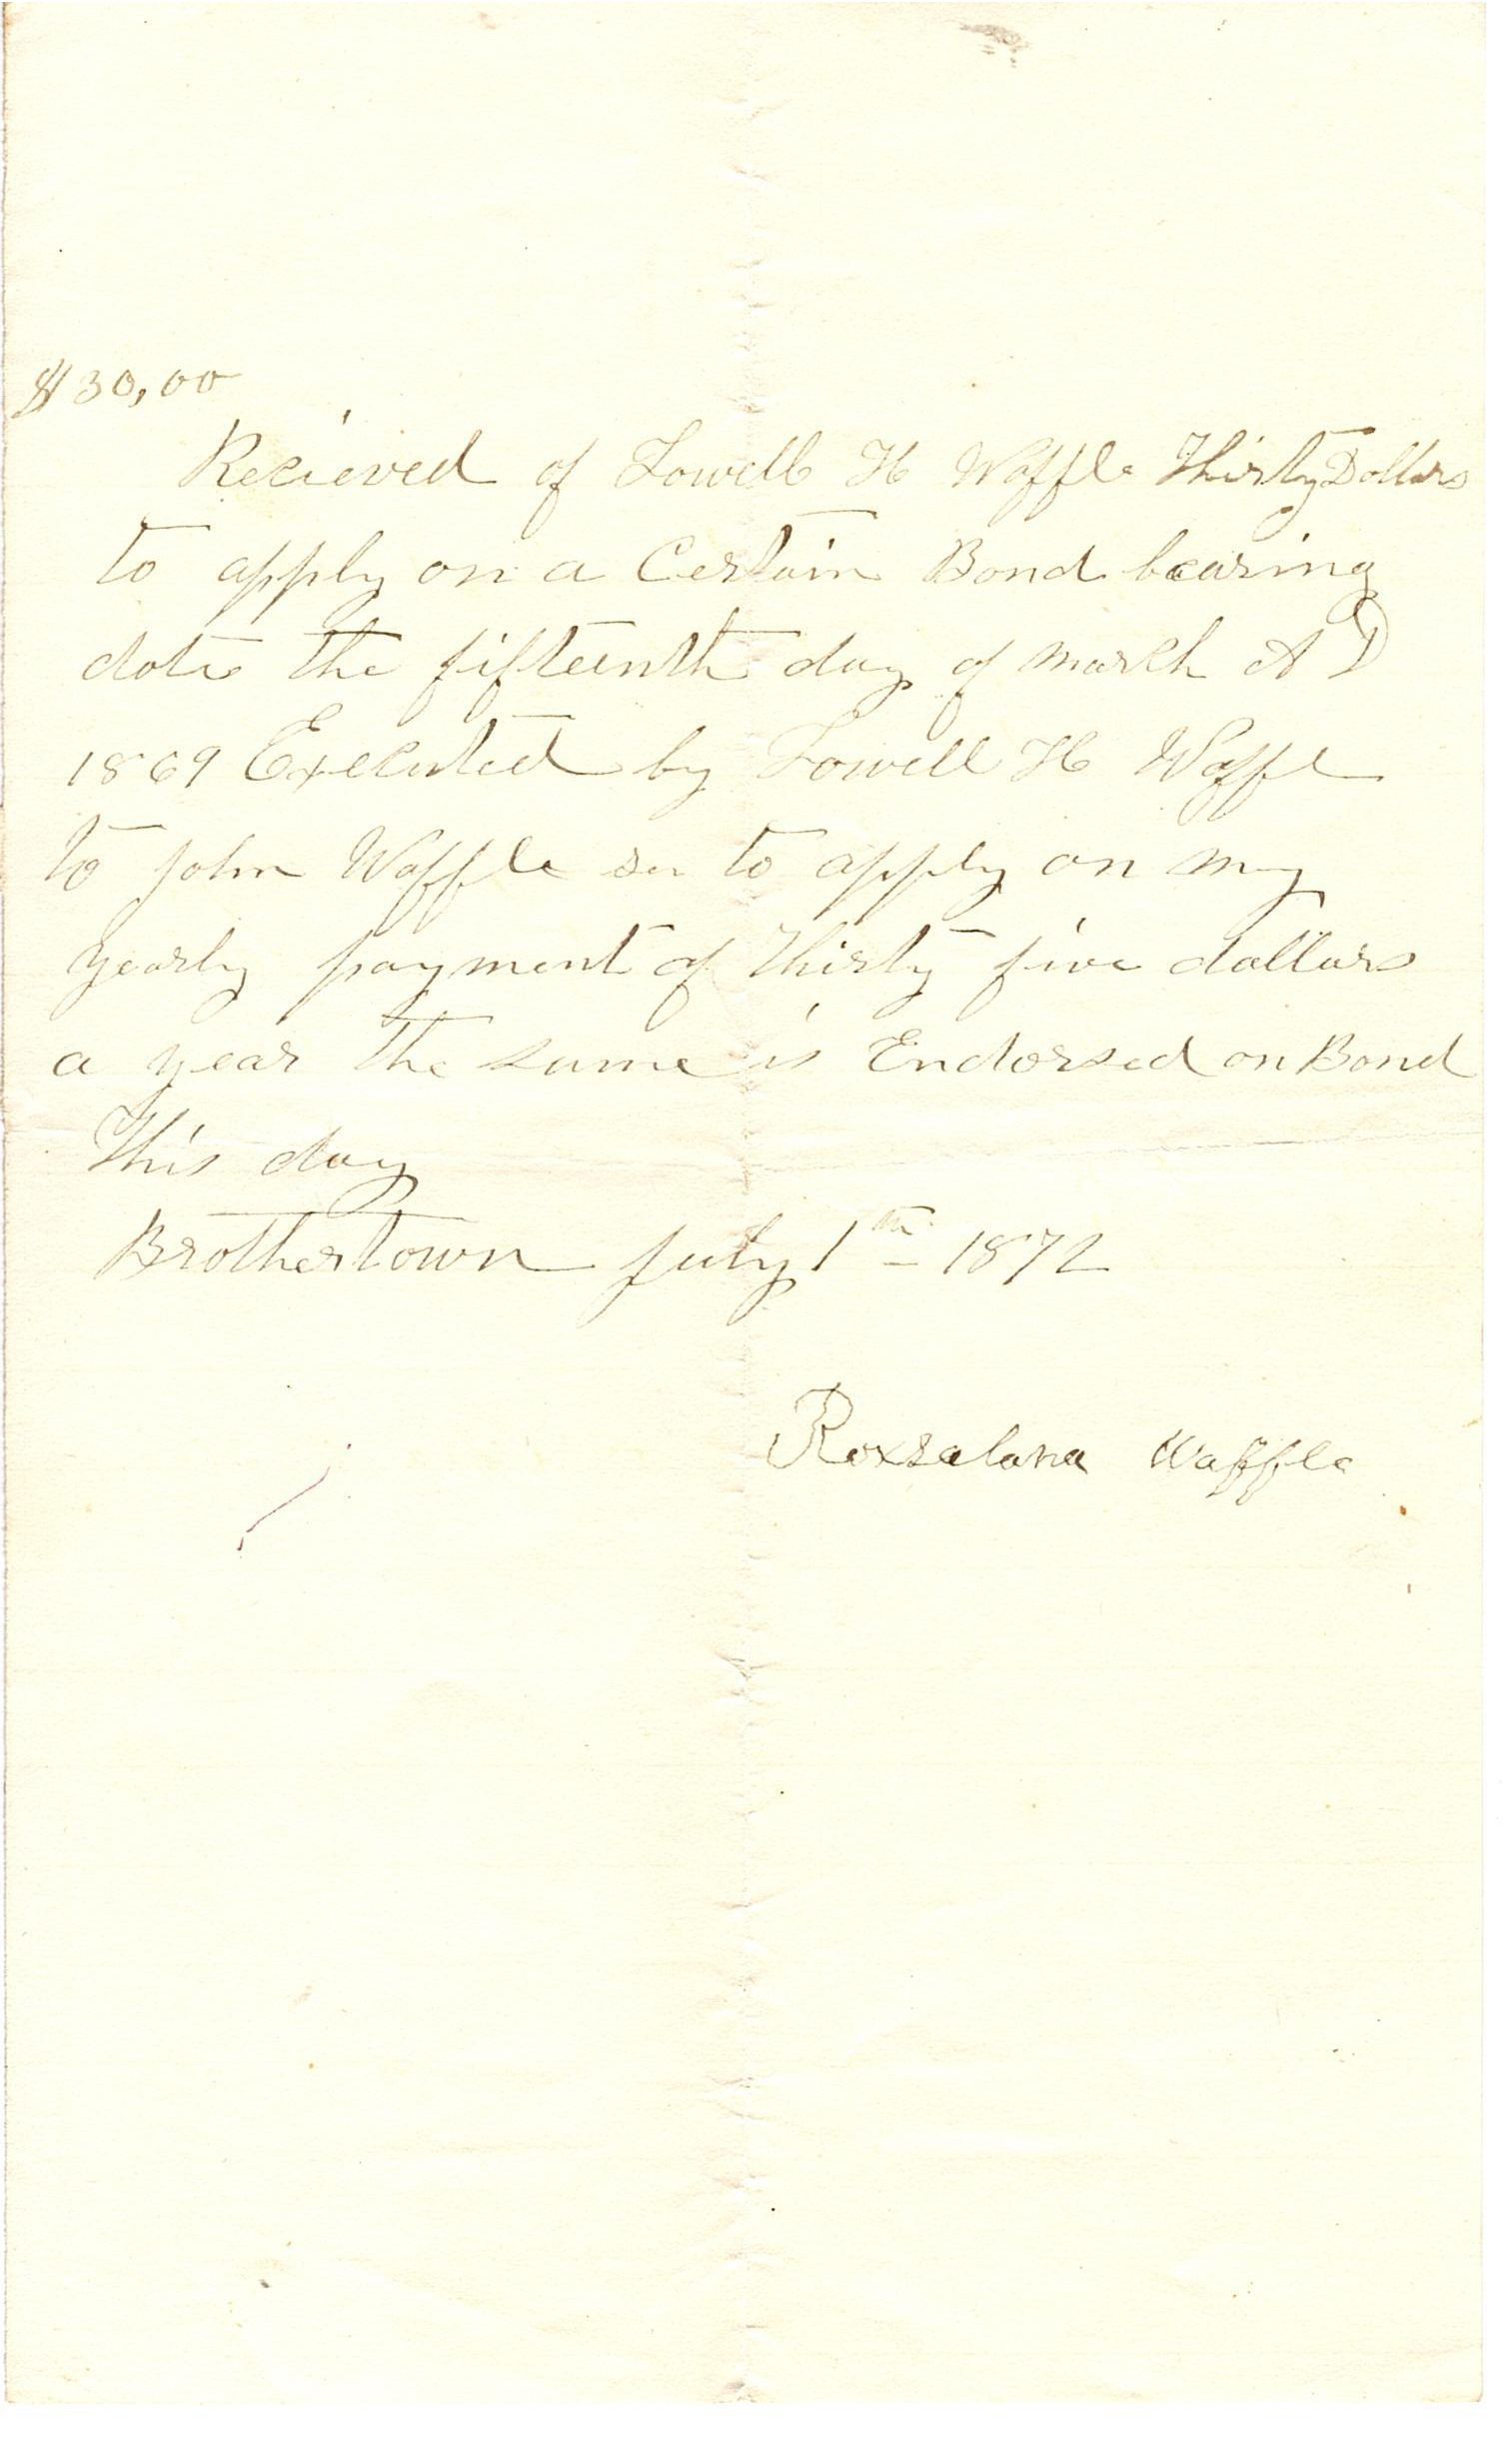 $30,00
Recieved of Lowell H Waffle Thirty Dollars
to apply on a Certain Bond bearing
date the fifteenth day of march A D
1869 Executed by Lowell H Waffl
to john Waffle sen to apply on my
yearly payment of Thirty five dollars
a year the same is Endorsed on Bond
This day
Brothertown july 1th 1872
Roxsalana Waffle